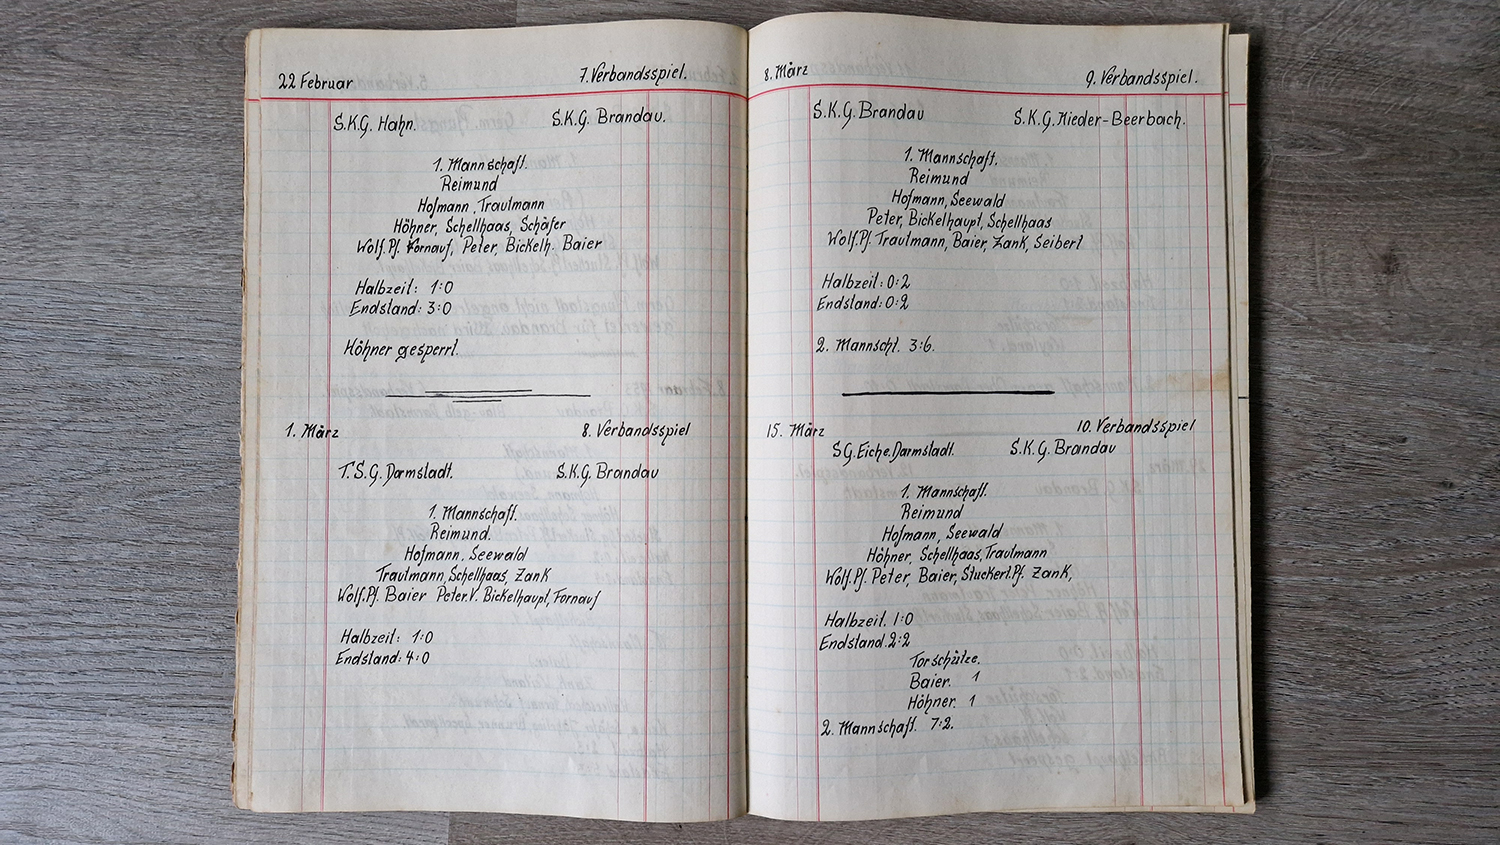 22 Februar 7. Verbandsspiel.
S.K.G. Hahn. S.K.G. Brandau.
1. Mannschaft.
Reimund
Hofmann, Trautmann
Höhner, Schellhaas, Schäfer
Wolf.Pf. Fornauf, Peter, Bickelh. Baier
Halbzeit: 1:0
Endstand: 3:0
Höhner gesperrt.
1. März 8. Verbandsspiel
T.S.G. Darmstadt. S.K.G. Brandau
1. Mannschaft.
Reimund.
Hofmann, Seewald
Trautmann, Schellhaas, Zank
Wolf.Pf. Baier Peter.V. Bickelhaupt, Fornauf
Halbzeit: 1:0
Endstand: 4:0
8. März 9. Verbandsspiel.
S.K.G. Brandau S.K.G. Nieder-Beerbach.
1. Mannschaft.
Reimund
Hofmann, Seewald
Peter, Bickelhaupt, Schellhaas
Wolf.Pf. Trautmann, Baier, Zank, Seibert
Halbzeit: 0:2
Endstand: 0:2
2. Mannscht. 3:6.
15. März 10. Verbandsspiel
SG. Eiche. Darmstadt. S.K.G. Brandau
1. Mannschaft.
Reimund
Hofmann, Seewald
Höhner, Schellhaas, Trautmann
Wolf.Pf. Peter, Baier, Stuckert.Pf. Zank,
Halbzeit. 1:0
Endstand. 2:2
Torschütze.
Baier. 1
Höhner. 1
2. Mannschaft. 7:2.